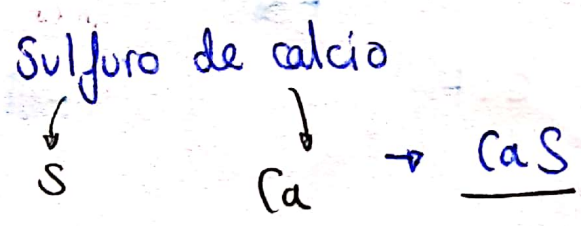 Sulfuro de calcio
S Ca → CaS